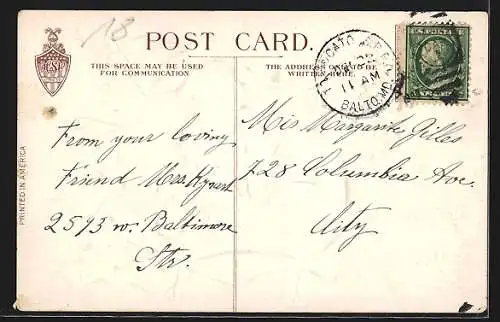 18
POST CARD.
THIS SPACE MAY BE USED
FOR COMMUNICATION
THE ADDRESS ONLY TO BE
WRITTEN HERE.
11 AM
BALTO. MD.
U.S. POSTAGE
PRINTED IN AMERICA
From your loving
Friend Mrs.
2593 W. Baltimore
Str.
Mis Margarite Gilles
728 Columbia Ave.
City